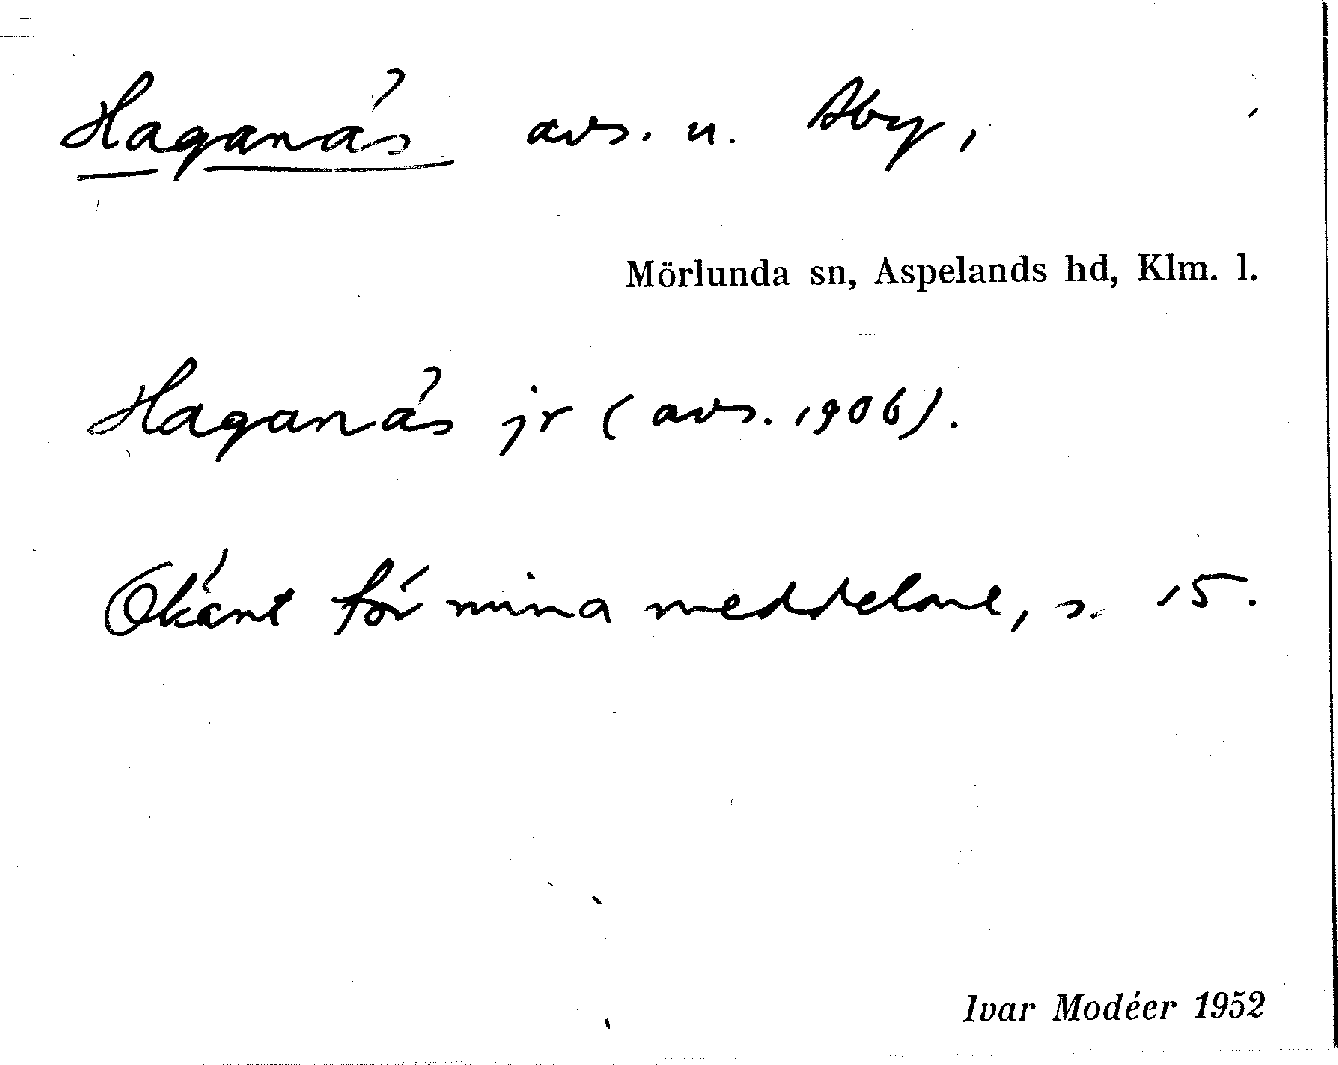 Haganäs avs. u. Åby,
Mörlunda sn, Aspelands hd, Klm. l.
Haganäs jr (avs. 1906).
Okänt för mina meddelare, s. 15.
Ivar Modéer 1952